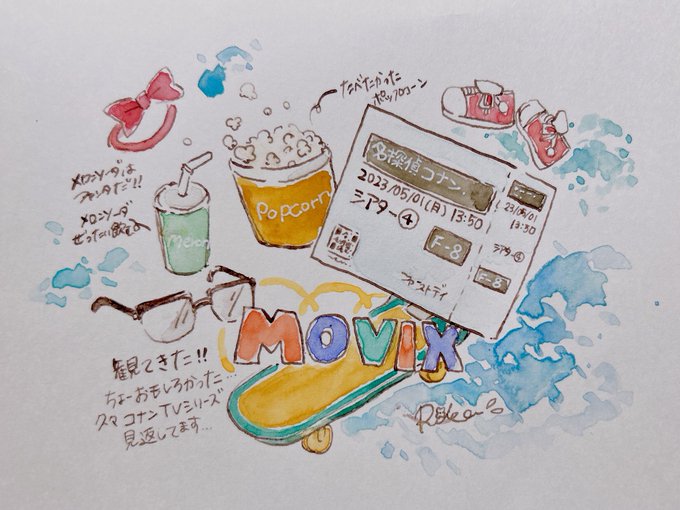 たべたかった
ポップコーン
メロンソーダは
ファンタだ!!
メロンソーダ
ぜったい飲むよ
Popcorn
Meron
名探偵コナン
2023/05/01(月) 13:50
シアター④
F-8
ファーストデイ
23/05/01
13:50
シアター④
F-8
MOVIX
観てきた!!
ちょーおもしろかった…
今コナンTVシリーズ
見返してます…